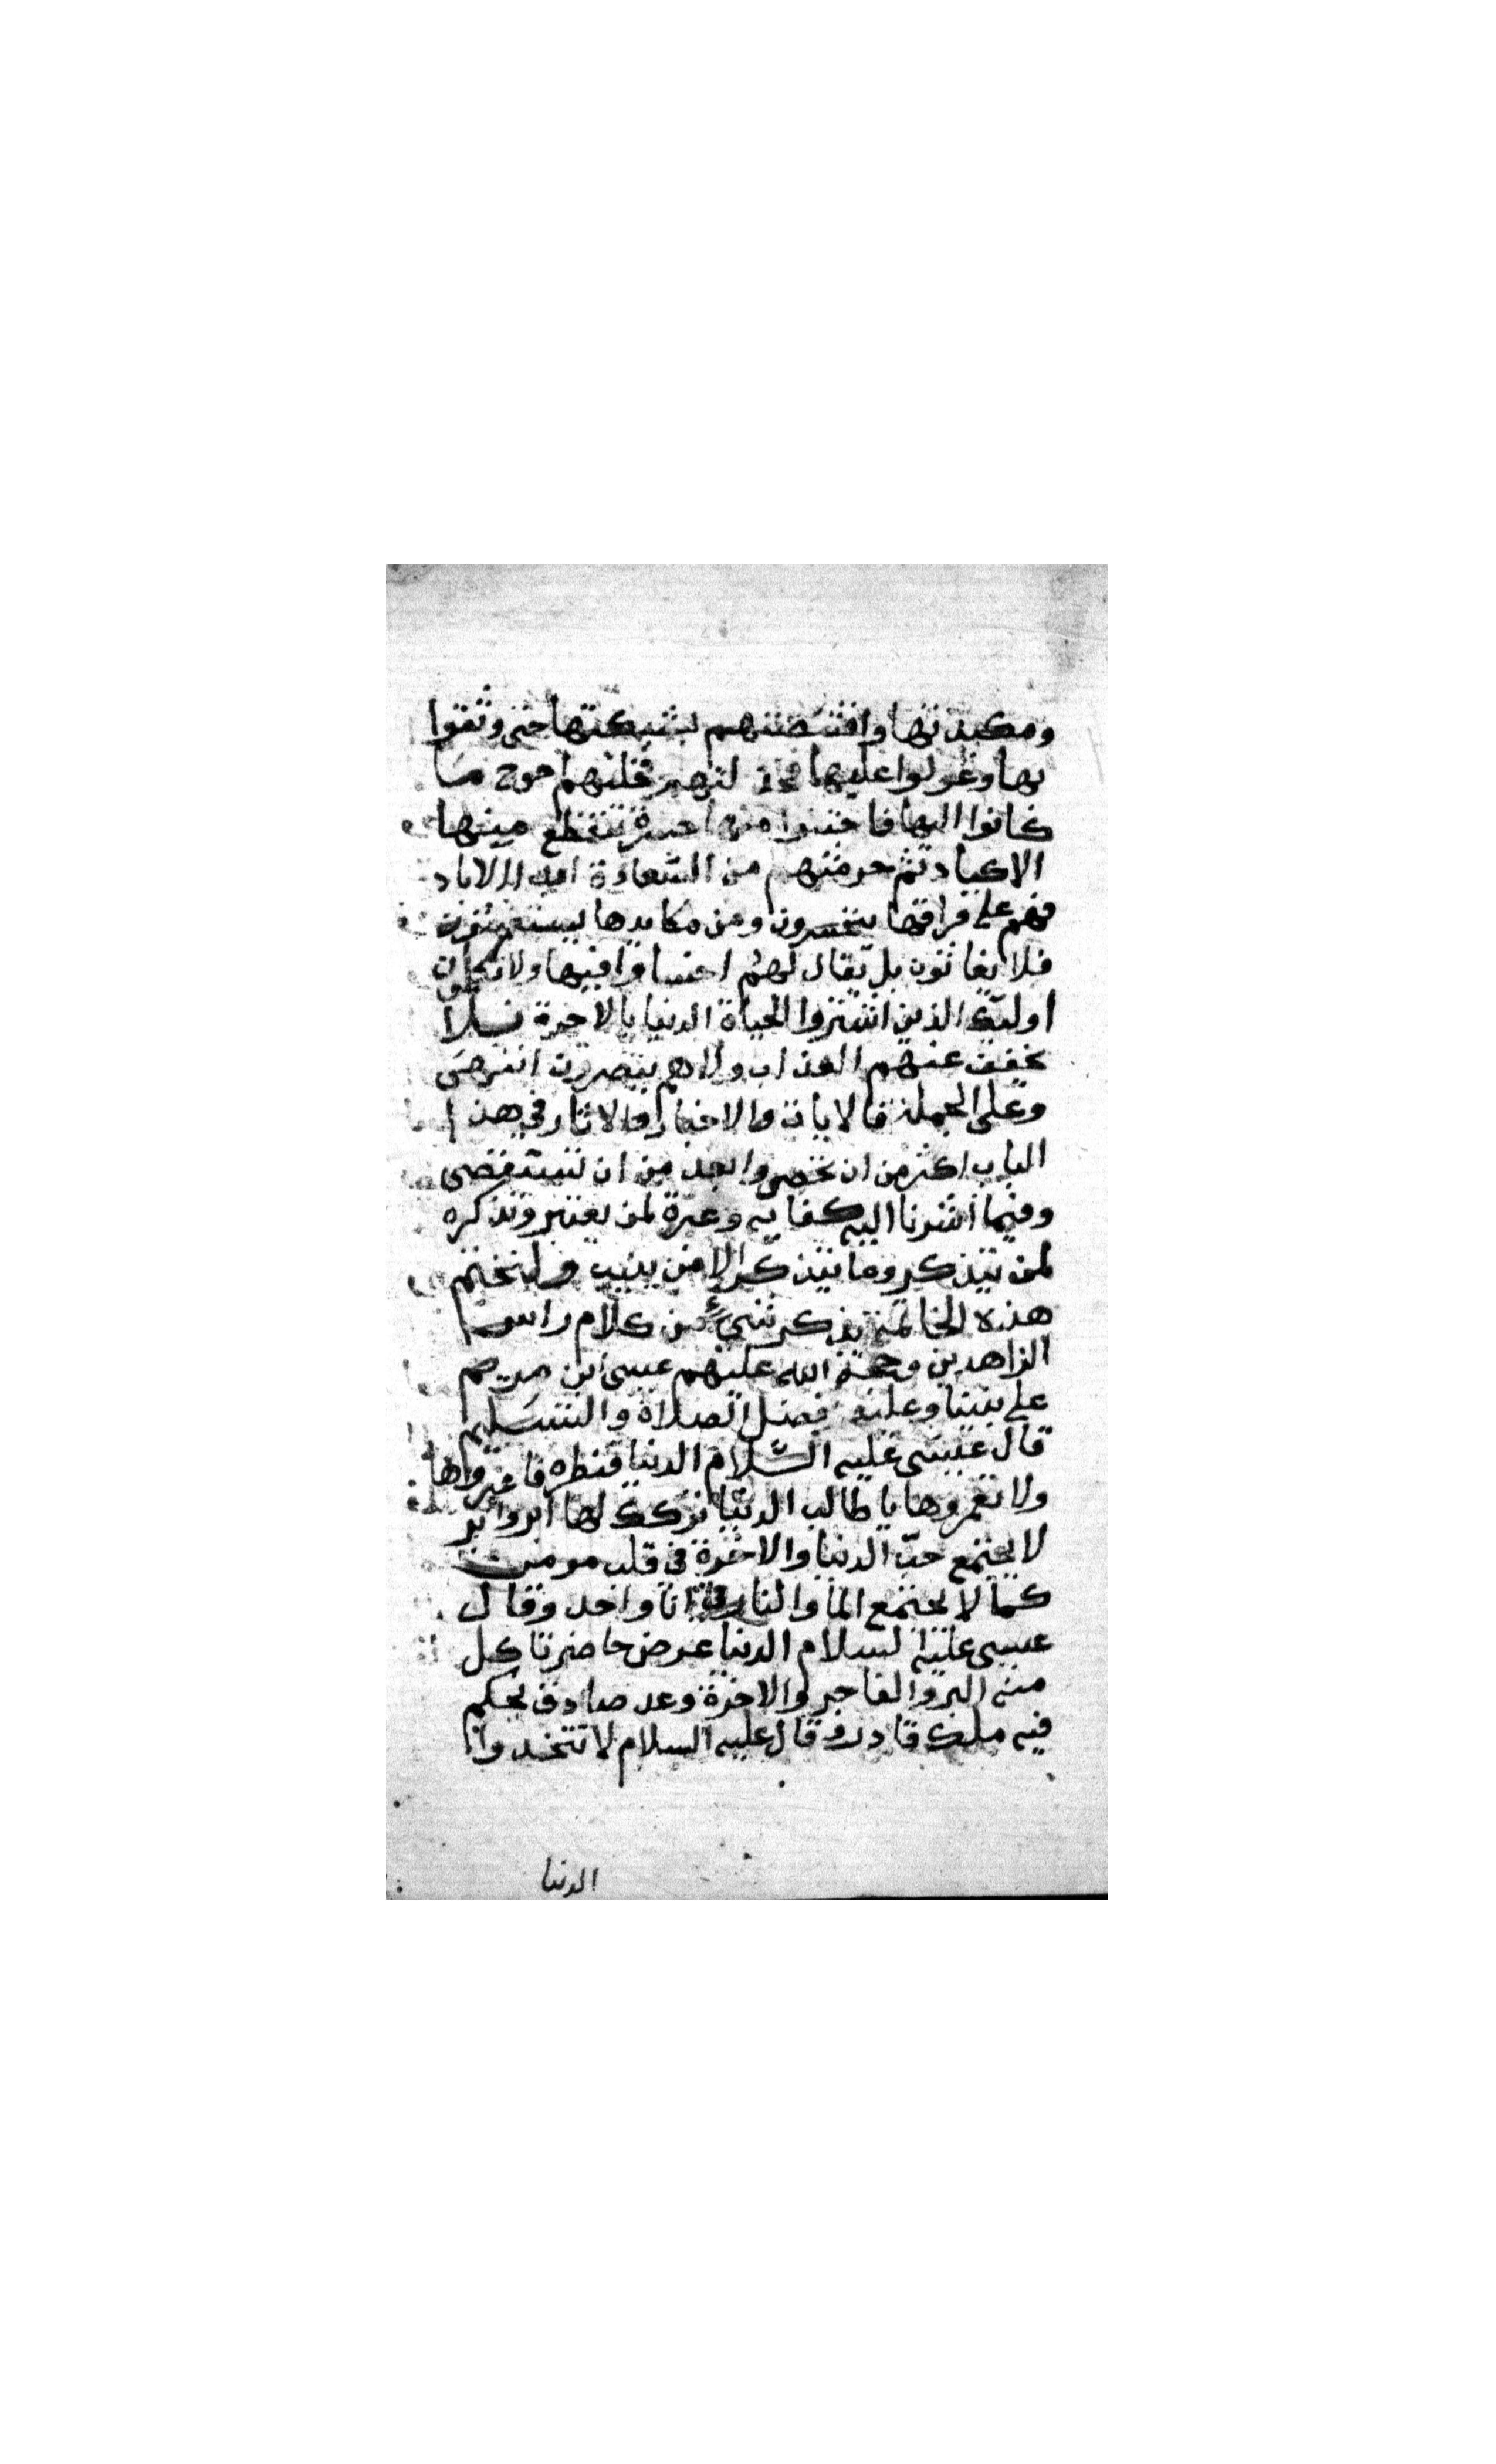 ومكيدتها واقتنصتهم بشبكتها حتى وثقوا
بها وعولوا عليها فخذلتهم احوج ما
كانوا اليها فاجتنوا منها حسرة تنقطع منها
الاكباد ثم حرمتهم من السعادة ابد الاباد
فهم على فراقها يتحسرون ومن مكايدها يستغيثون
فلا يغاثون بل يقال لهم اخسأوا فيها ولا تكلمون
اوليك الذين اشتروا الحياة الدنيا بالاخرة فلا
يخفف عنهم العذاب ولا هم ينصرون انتهى
وعلى الجملة فالايات والاخبار والاثار في هذا
الباب اكثر من ان تحصى وابعد من ان تستقصى
وفيما اشرنا اليه كفاية وعبرة لمن يعتبر وتذكره
لمن يتذكر وما يتذكر الا من ينيب ولنختم
هذه الخاتمة بذكر شيء من كلام راس
الزاهدين وحجة الله عليهم عيسى ابن مريم
على نبينا وعليه افضل الصلاة والتسليم
قال عيسى عليه السّلام الدنيا قنطره فاعبروها
ولا تعمروها يا طالب الدنيا تركك لها ابر وابر
لا يجتمع حبّ الدنيا والاخرة في قلب مومن
كما لا يجتمع الما والنار في انا واحد وقال
عيسى عليه السلام الدنيا عرض حاضر تاكل
منه البر والفاجر والاخرة وعد صادق يحكم
فيه ملك قادر وقال عليه السلام لا تتخذوا
الدنيا